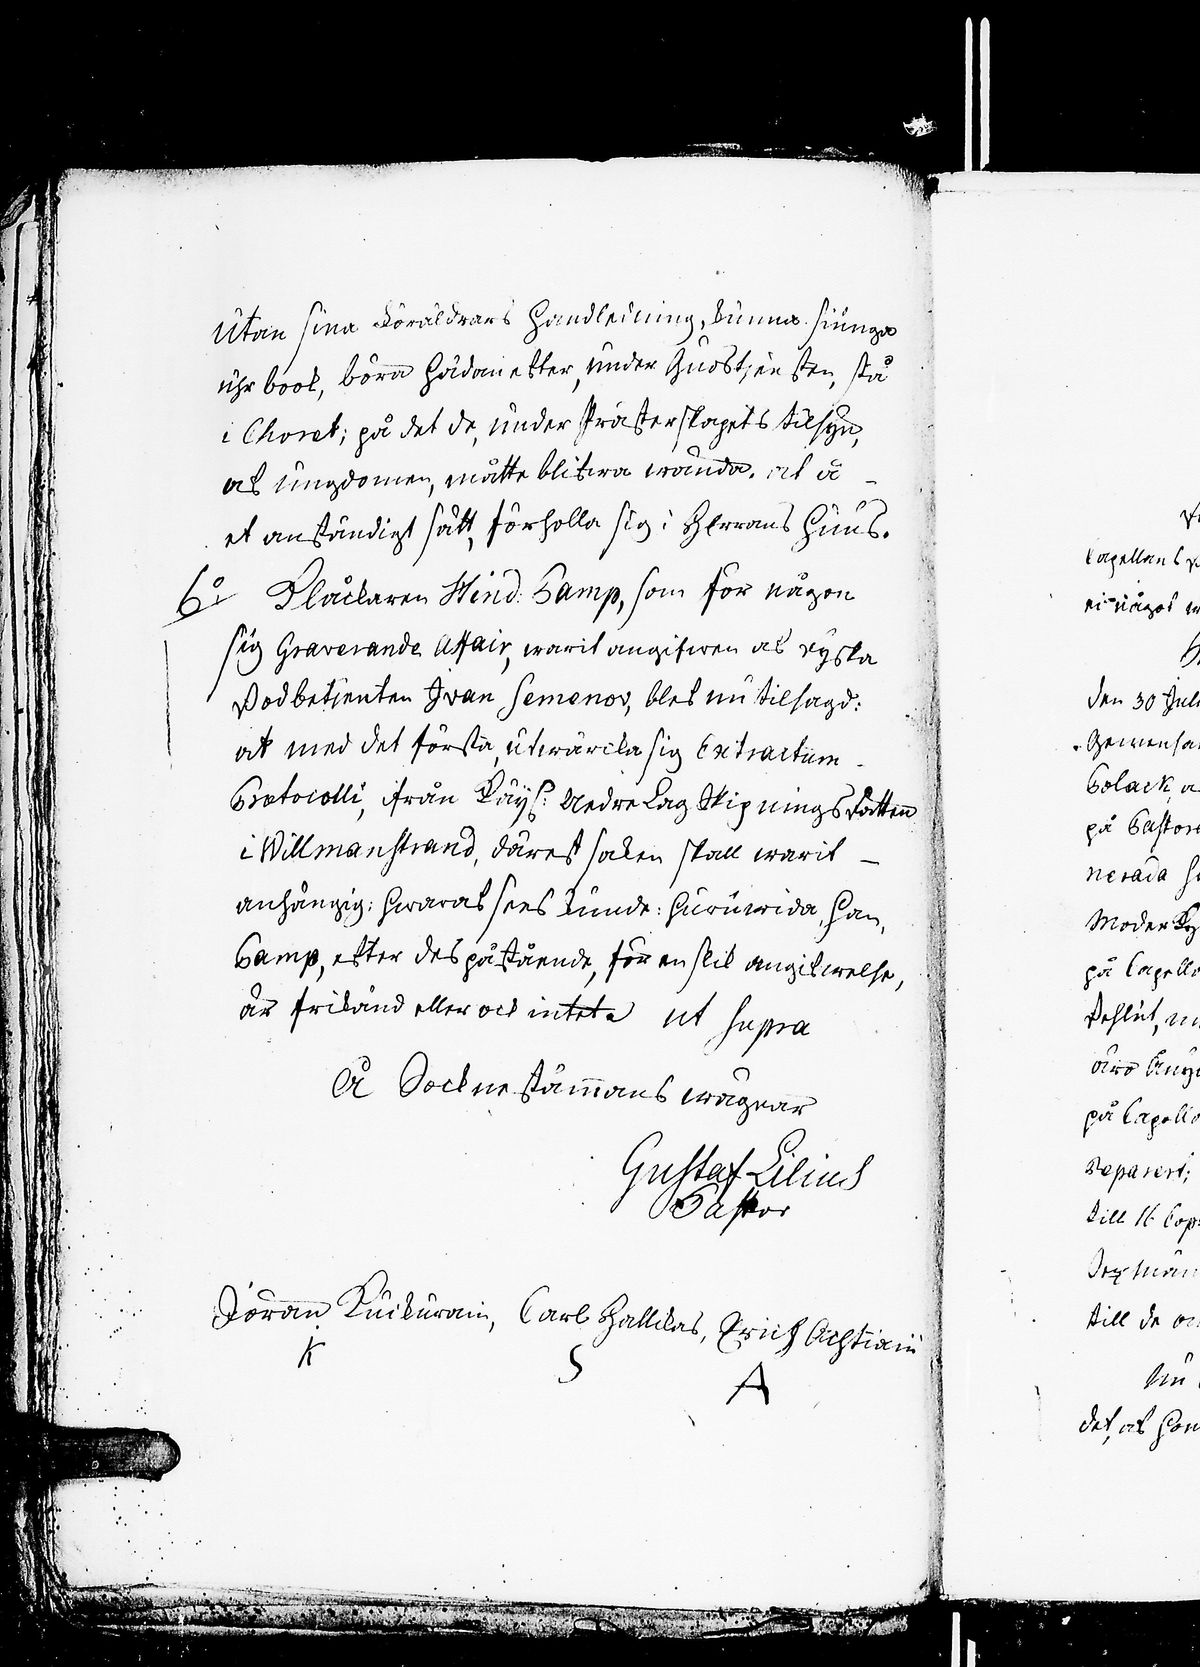 utan sina Föräldrars Handledning, kunna siunga
uhr book, böra hädanefter, under Gudstjensten, stå
i Choret; på det de, under Prästerskapets tilsyn,
as ungdomen, måtte blifwa wända, at å
et anständigt sätt, förholla sig i Herrans Huus.
6º Klåckaren Hind: Pamp, som för någon
sig Graverande Affair, warit angifwen af ryska
Podbetjenten Ivan Semenov, blef nu tilsagd:
at med det första, utwärcka sig Extractum
Protocolli, ifrån Kays: Nedre Lag Skipnings Rätten
i Willmanstrand, därest saken skall warit
anhängig: hwaraf sees kunde: huruwida, han,
Pamp, efter des påstående, för enskil angifwelse,
är frikänd eller ock intet. ut supra
Å Sockne stämans wägnar
Gustaf Lilius
Pastor
Jöran Kuckurain, Carl Hallikas, Erich Achtiain
K
S
A
Capellans
ei något
den 30 Juli
Gemensa
Polack, a
på Pastors
nerada
Moder Ky
på Capell
Beslut, m
äro
på Capell
reparert;
till 16 Cop:
Sexmän
till de
Nu
det, at hon